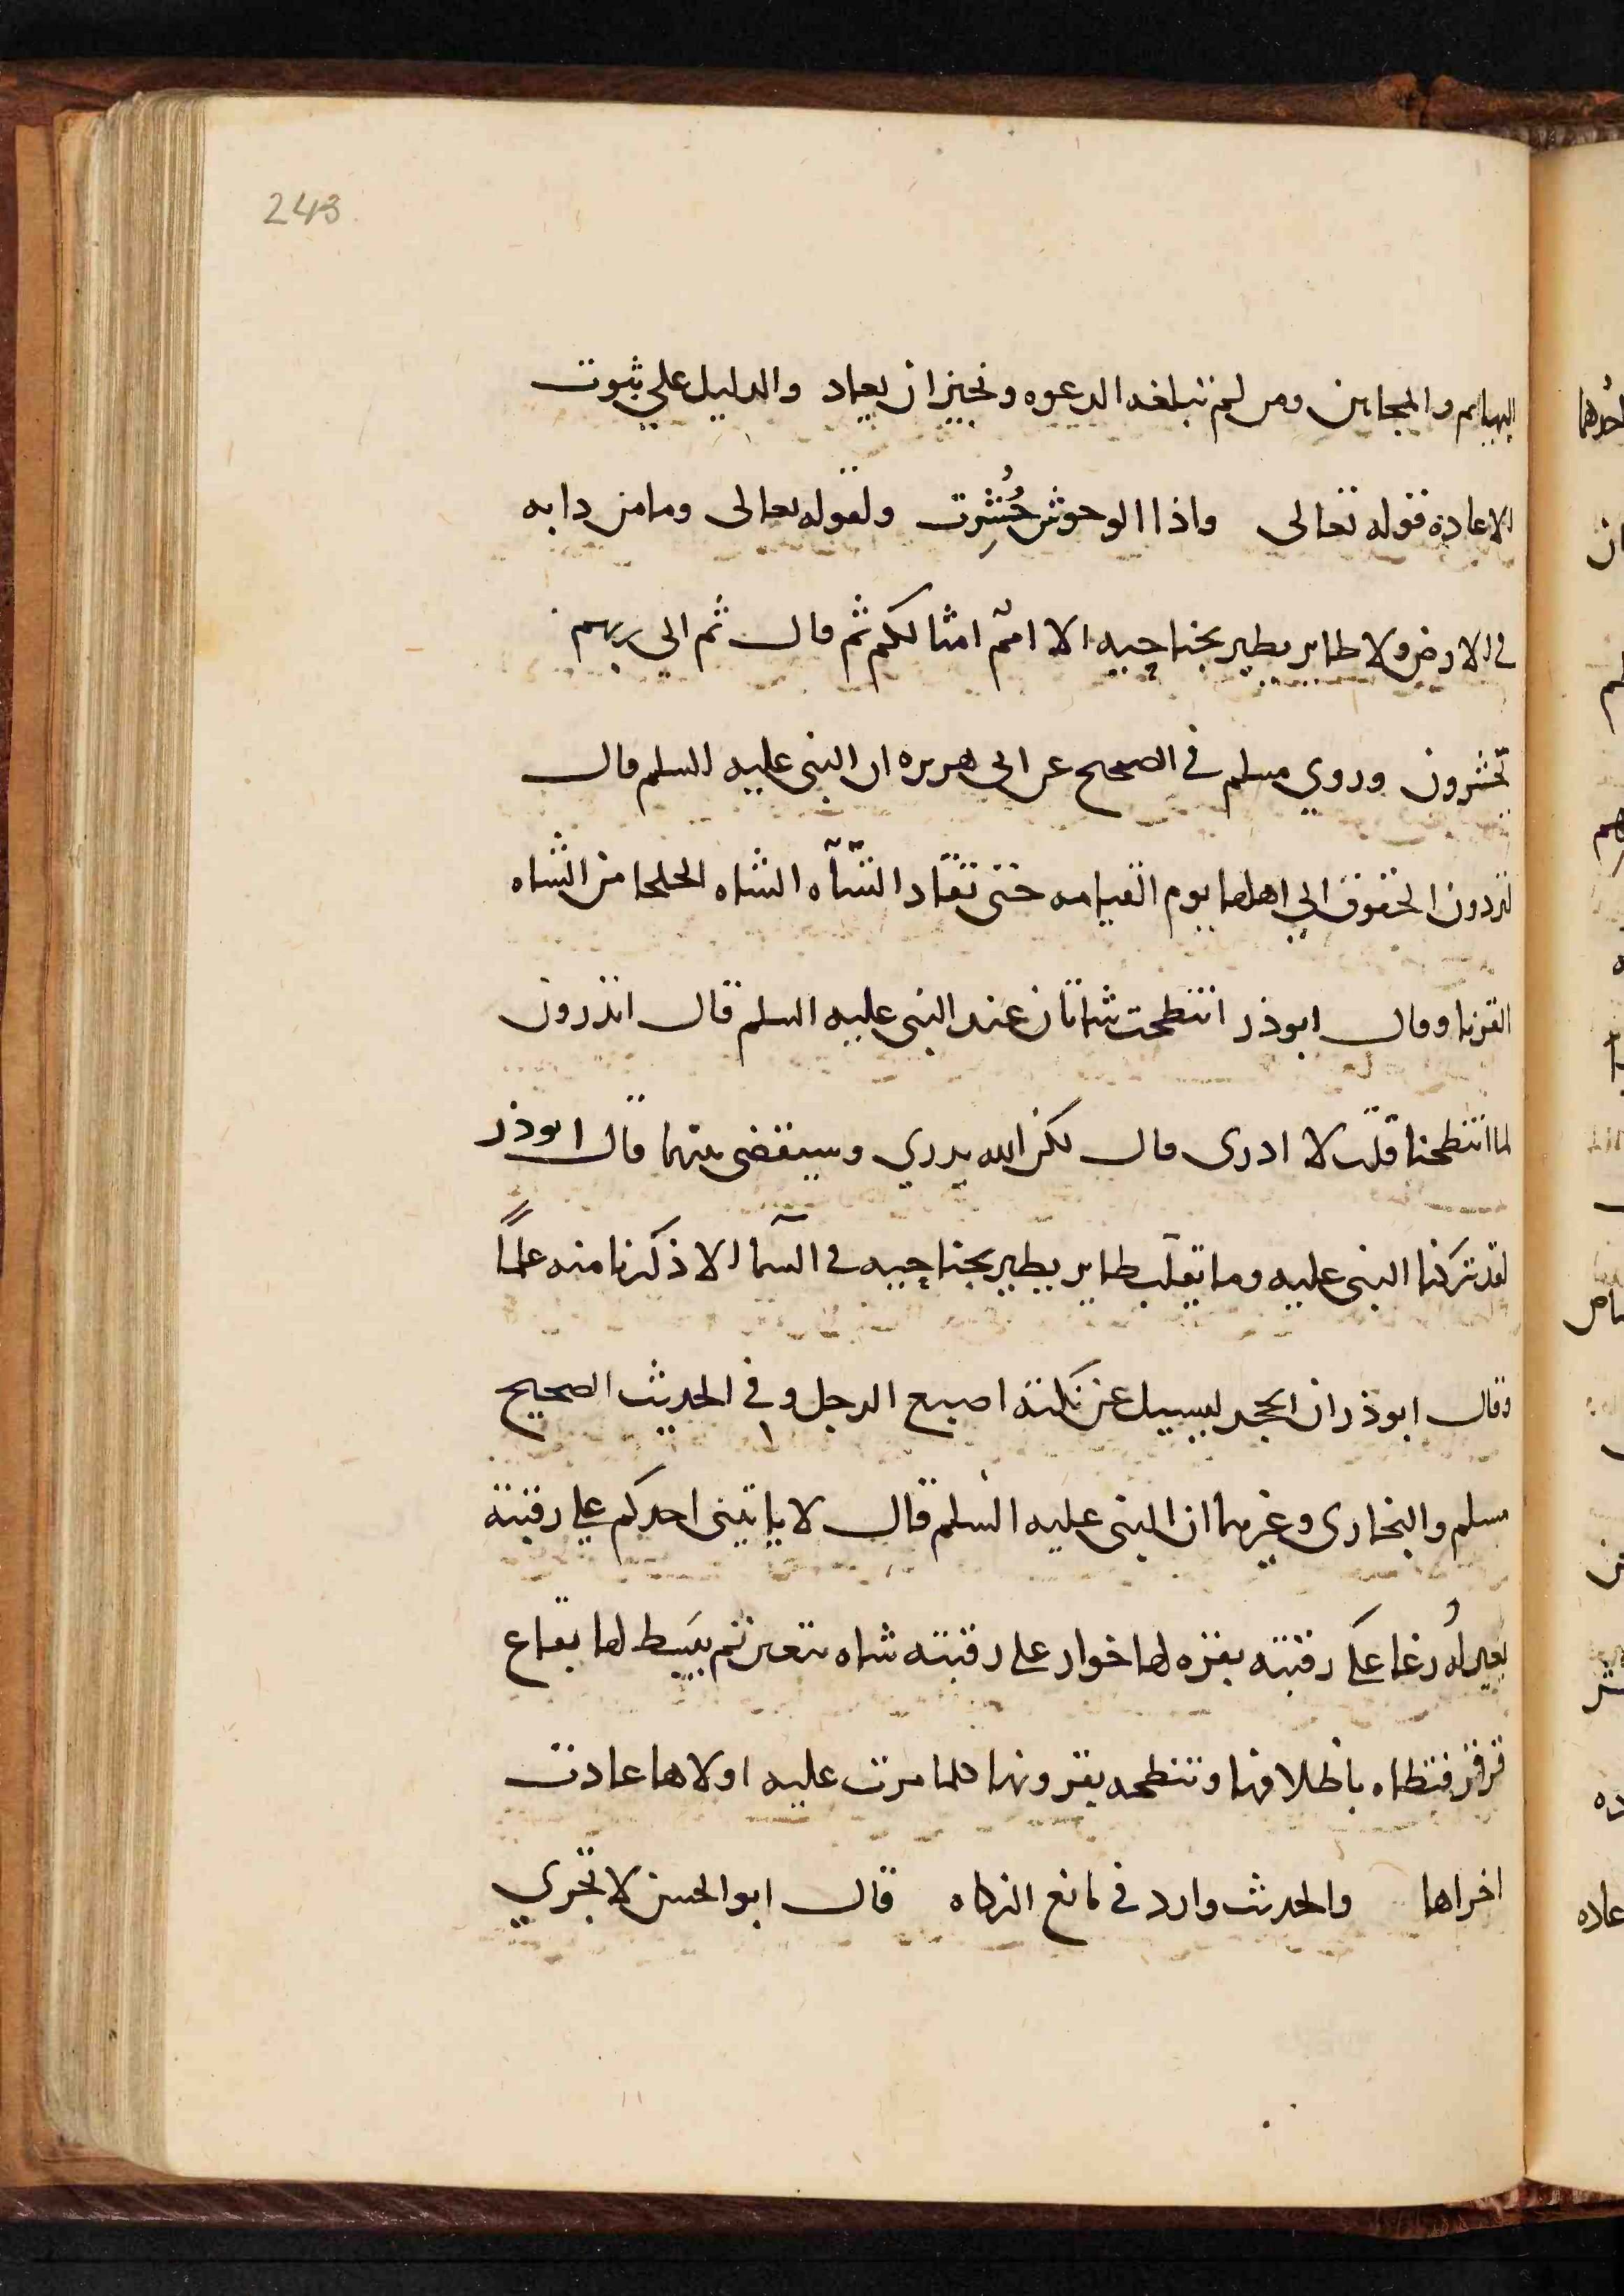 243
البهايم والمجانين ومن لم تبلغه الدعوه ونجيز ان يعاد والدليل علي ثبوت
الاعادة قوله تعالى واذا الوحوش حُشِرت ولقوله تعالى وما من دابه
في الارض ولا طاير يطير بجناحيه الا امم امثالكم ثم قال ثم الي ربهم
تحشرون وروي مسلم في الصحيح عن ابى هريره ان النبى عليه السلم قال
لتردون الحقوق الي اهلها يوم القيامه حتى تقاد الشاه الشاه الجلحا من الشاه
القرنا وقال ابوذر انتطحت شاتان عند النبى عليه السلم قال اتدرون
لما انتطحتا قلت لا ادرى قال لكن الله يدري وسيقضى بينهما قال ابوذر
لقد تركنا النبى عليه وما يقلب طاير يطير بجناحيه في السما الا ذكرنا منه علمًا
وقال ابوذر ان الحجر ليسيل عن نكته اصبع الرجل وفي الحديث الصحيح
مسلم والبخارى وغيرهما ان النبى عليه السلم قال لا ياتينى احدكم على رقبته
بعير لُه رغا على رقبته بقره لها خوار على رقبته شاه تيعر ثم يبسط لها بقاع
قرقر فتطاه باظلافها وتنطحه بقرونها كلما مرت عليه اولاها عادت
اخراها والحديث وارد في مانع الزكاه قال ابوالحسن لا تجري